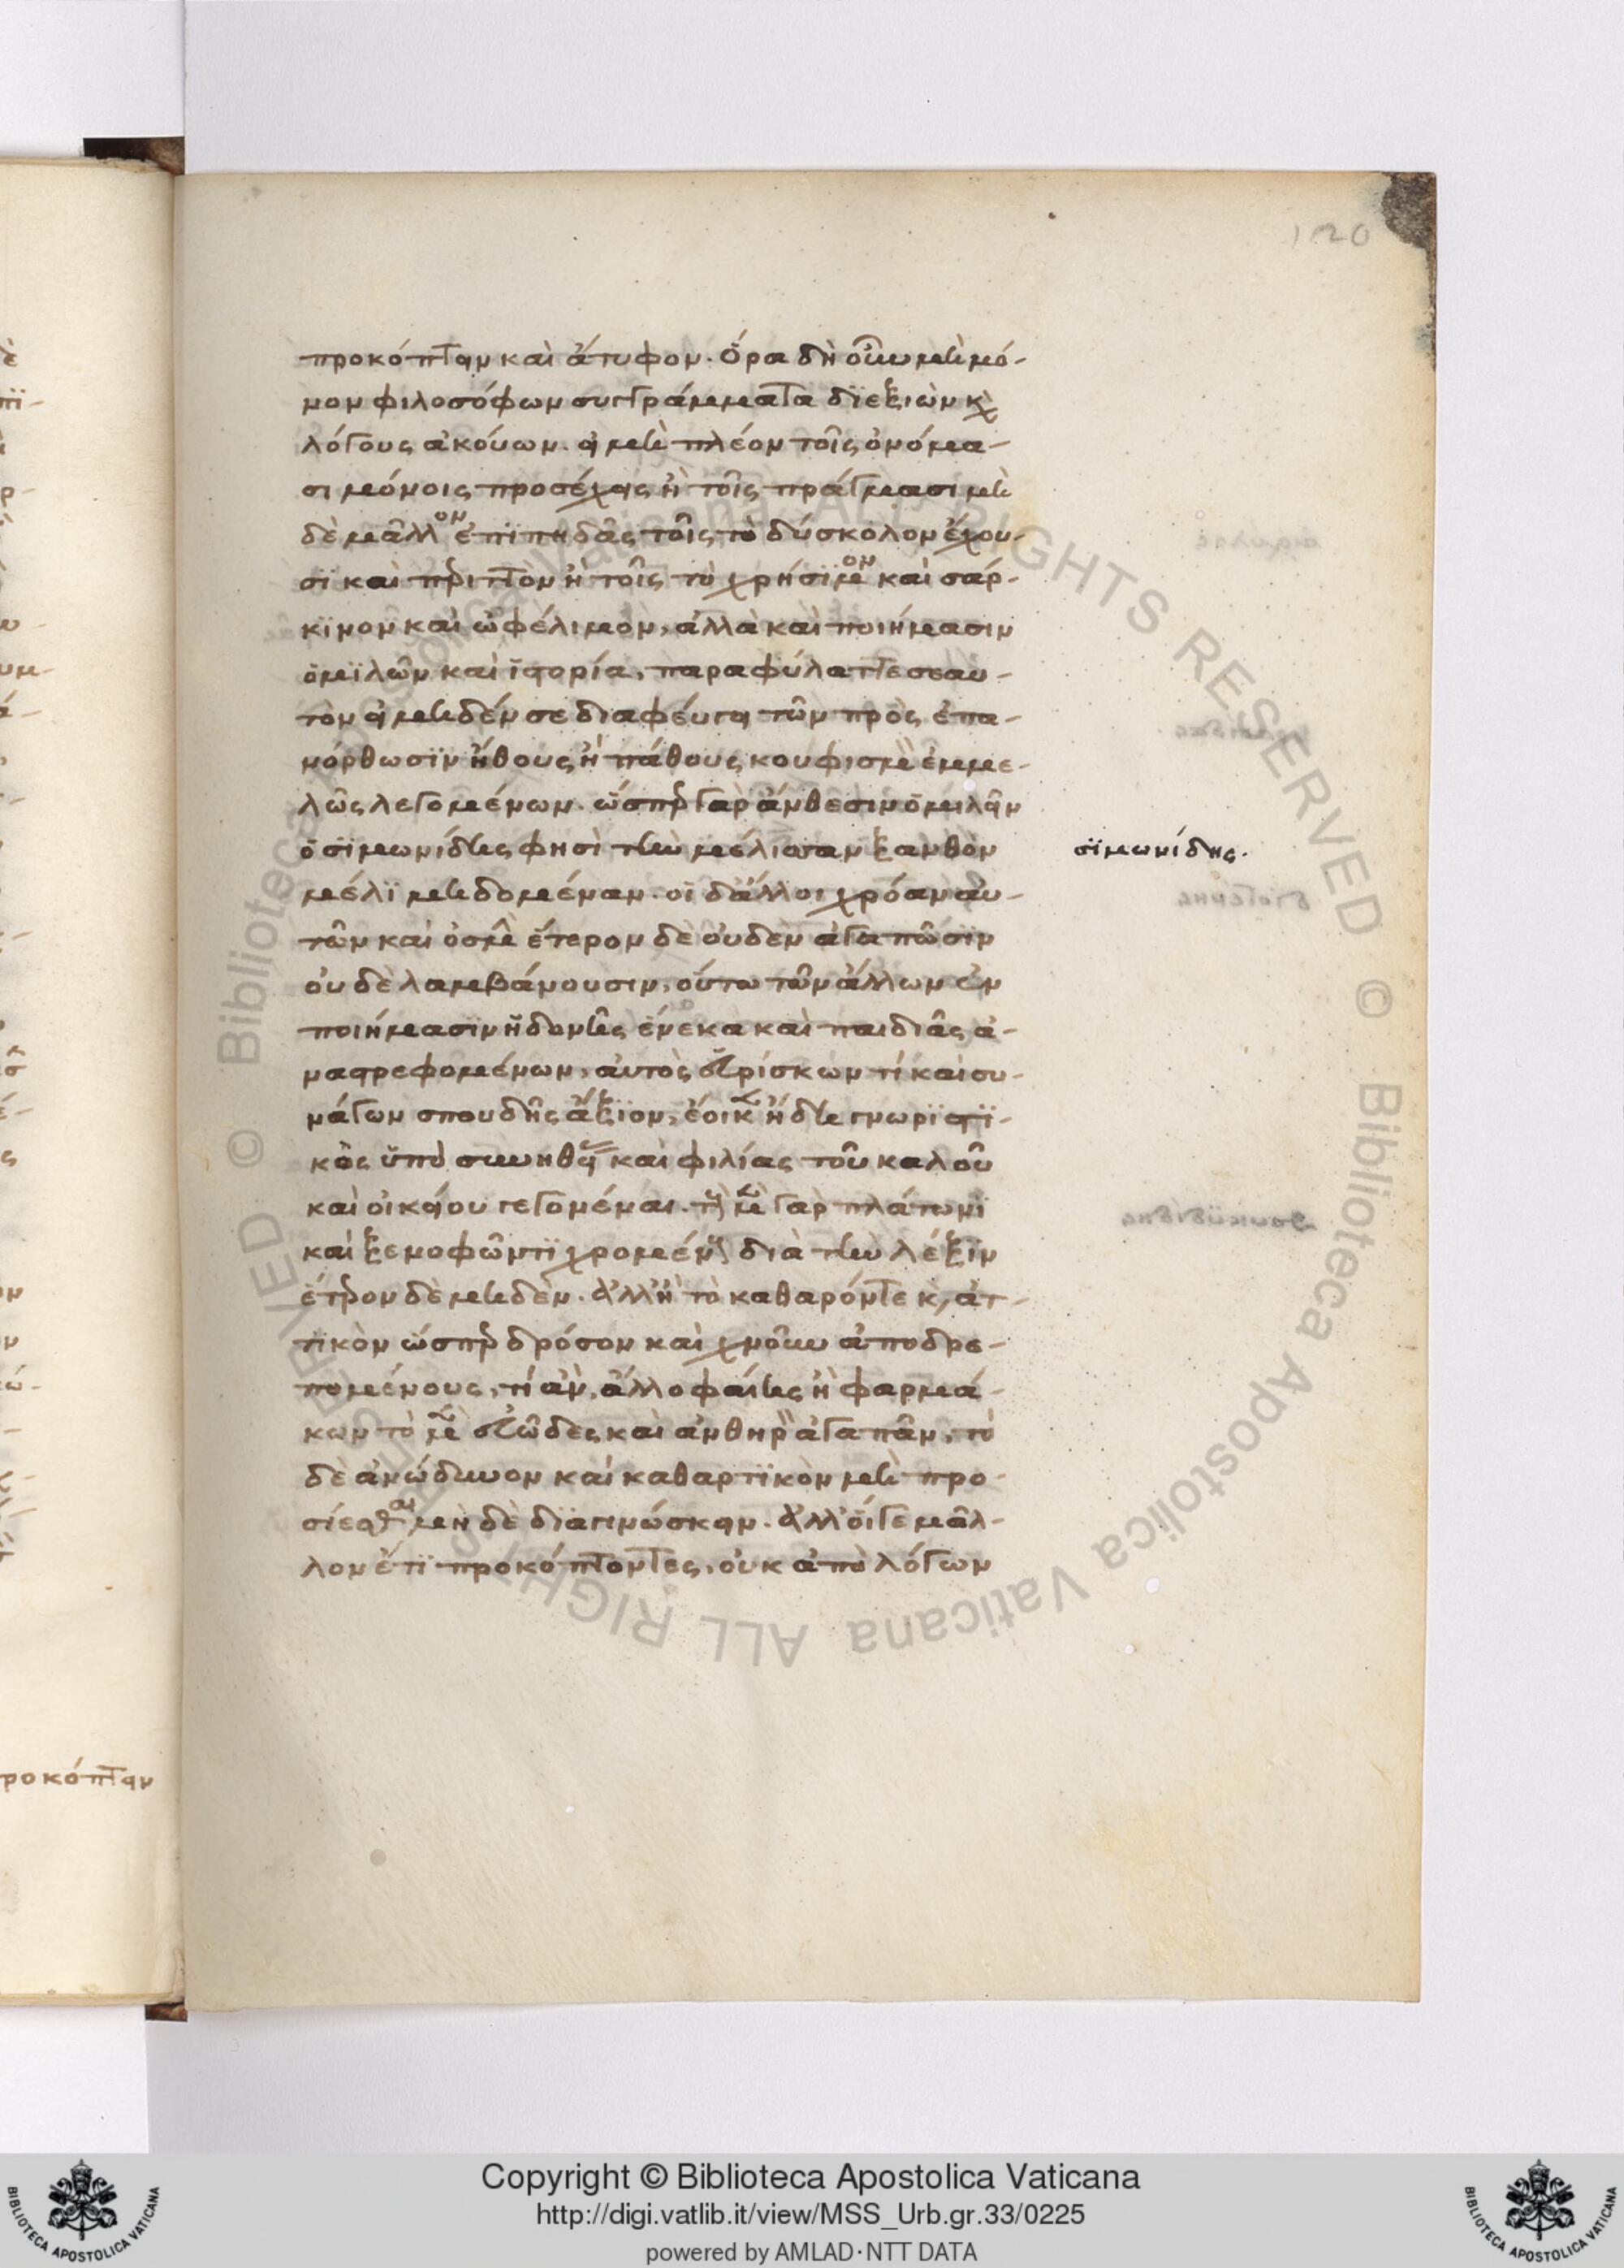 120
προκόπτειν καὶ ἄτυφον. Ὅρα δὴ οὖν μὴ μό-
νον φιλοσόφων συγγράμματα διεξιὼν κ̀
λόγους ἀκούων. εἰ μὴ πλέον τοῖς ὀνόμα-
σι μόνοις προσέχεις ἢ τοῖς πράγμασι μὴ
δὲ μᾶλλον ἐπιπηδᾶς τοῖς τὸ δύσκολον ἔχου-
σϊ καὶ περιττὸν ἢ τοῖς τὸ χρήσϊμον καὶ σάρ-
κϊνον καὶ ὠφέλιμον, ἀλλὰ καὶ ποιήμασιν
ὁμϊλῶν καὶ ἱστορία, παραφύλαττε σεαυ-
τὸν εἰ μηδέν σε διαφέυγει τῶν πρὸς ἐπα-
νόρθωσϊν ἤθους ἢ πάθους κουφισμὸν ἐμμε-
λῶς λεγομένων. ὥσπερ γὰρ ἄνθεσιν ὁμιλεῖν
ὁ σϊμωνίδης φησὶ τὴν μέλισσαν ξανθὸν
μέλϊ μηδομέναν. οἱ δ᾽ἄλλοι χρόαν αὐ-
τῶν καὶ ὀσμὴν ἕτερον δὲ οὐδὲν ἀγαπῶσϊν
οὐδὲ λαμβάνουσιν, οὕτω τῶν ἄλλων ἐν
ποιήμασϊν ἡδονῆς ἕνεκα καὶ παιδιᾶς ἀ-
ναστρεφομένων, αὐτὸς εὑρίσκων τί καὶ συ-
νάγων σπουδῆς ἄξϊον, ἔοικεν ἤδη γνωρϊστϊ-
κὸς ὑπὸ συνηθείας καὶ φιλίας τοῦ καλοῦ
καὶ οἰκείου γεγονέναι. τοὺς μὲν γὰρ πλάτωνϊ
καὶ ξενοφῶντϊ χρομένους διὰ τὴν λέξϊν
ἕτερον δὲ μηδὲν. ἀλλ᾽ ἢ τὸ καθαρόν τε κ̀ ἀτ-
τϊκὸν ὥσπερ δρόσον καὶ χνοῦν ἀποδρε-
πομένους, τί ἂν, ἄλλο φαίης ἢ φαρμά-
κων τὸ μὲν εὐῶδες καὶ ἀνθηρὸν ἀγαπᾶν, τὸ
δὲ ἀνώδυνον καὶ καθαρτϊκὸν μὴ προ-
σίεσθαι μὴ δὲ διαγινώσκειν. ἀλλ᾽ οἵ γε μᾶλ-
λον ἔτϊ προκόπτοντες, οὐκ ἀπὸ λόγων
σϊμωνίδης.
ροκόπτειν
© Biblioteca Apostolica Vaticana ALL RIGHTS RESERVED © Biblioteca Apostolica Vaticana ALL RIGHTS RESERVED
Copyright © Biblioteca Apostolica Vaticana
http://digi.vatlib.it/view/MSS_Urb.gr.33/0225
powered by AMLAD·NTT DATA
BIBLIOTECA APOSTOLICA VATICANA
BIBLIOTECA APOSTOLICA VATICANA